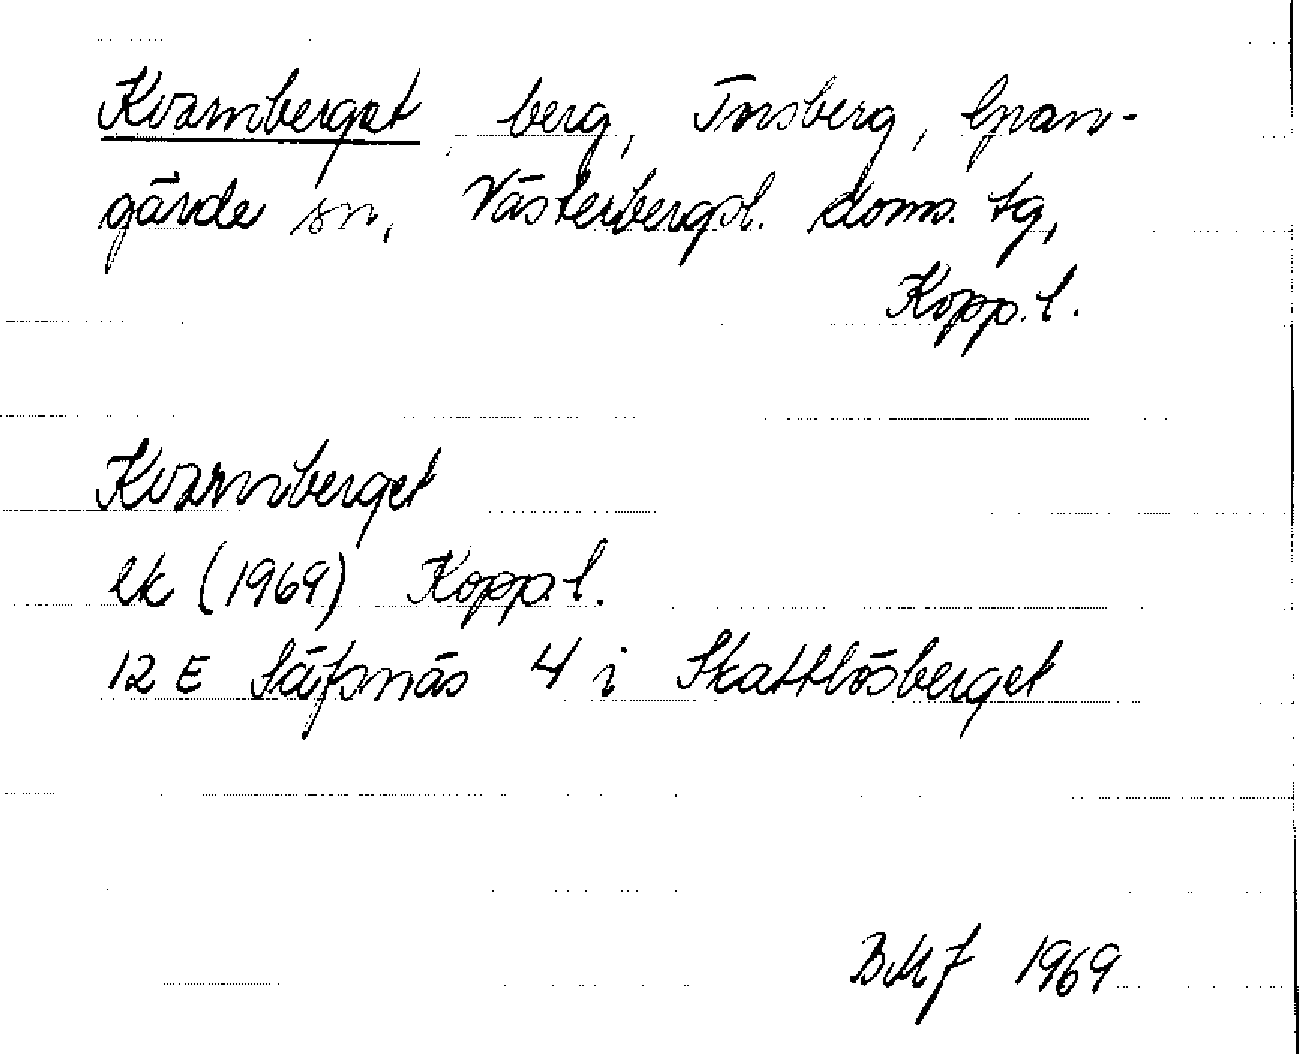 Kvarnberget, berg, Tnsberg, Gran-
gärde sn, Västerbergsl. doms. tg,
Kopp. l.
Kvarnberget
ek (1969) Kopp. l.
12 E Säfsnäs 4 i Skattlösberget
BMJ 1969